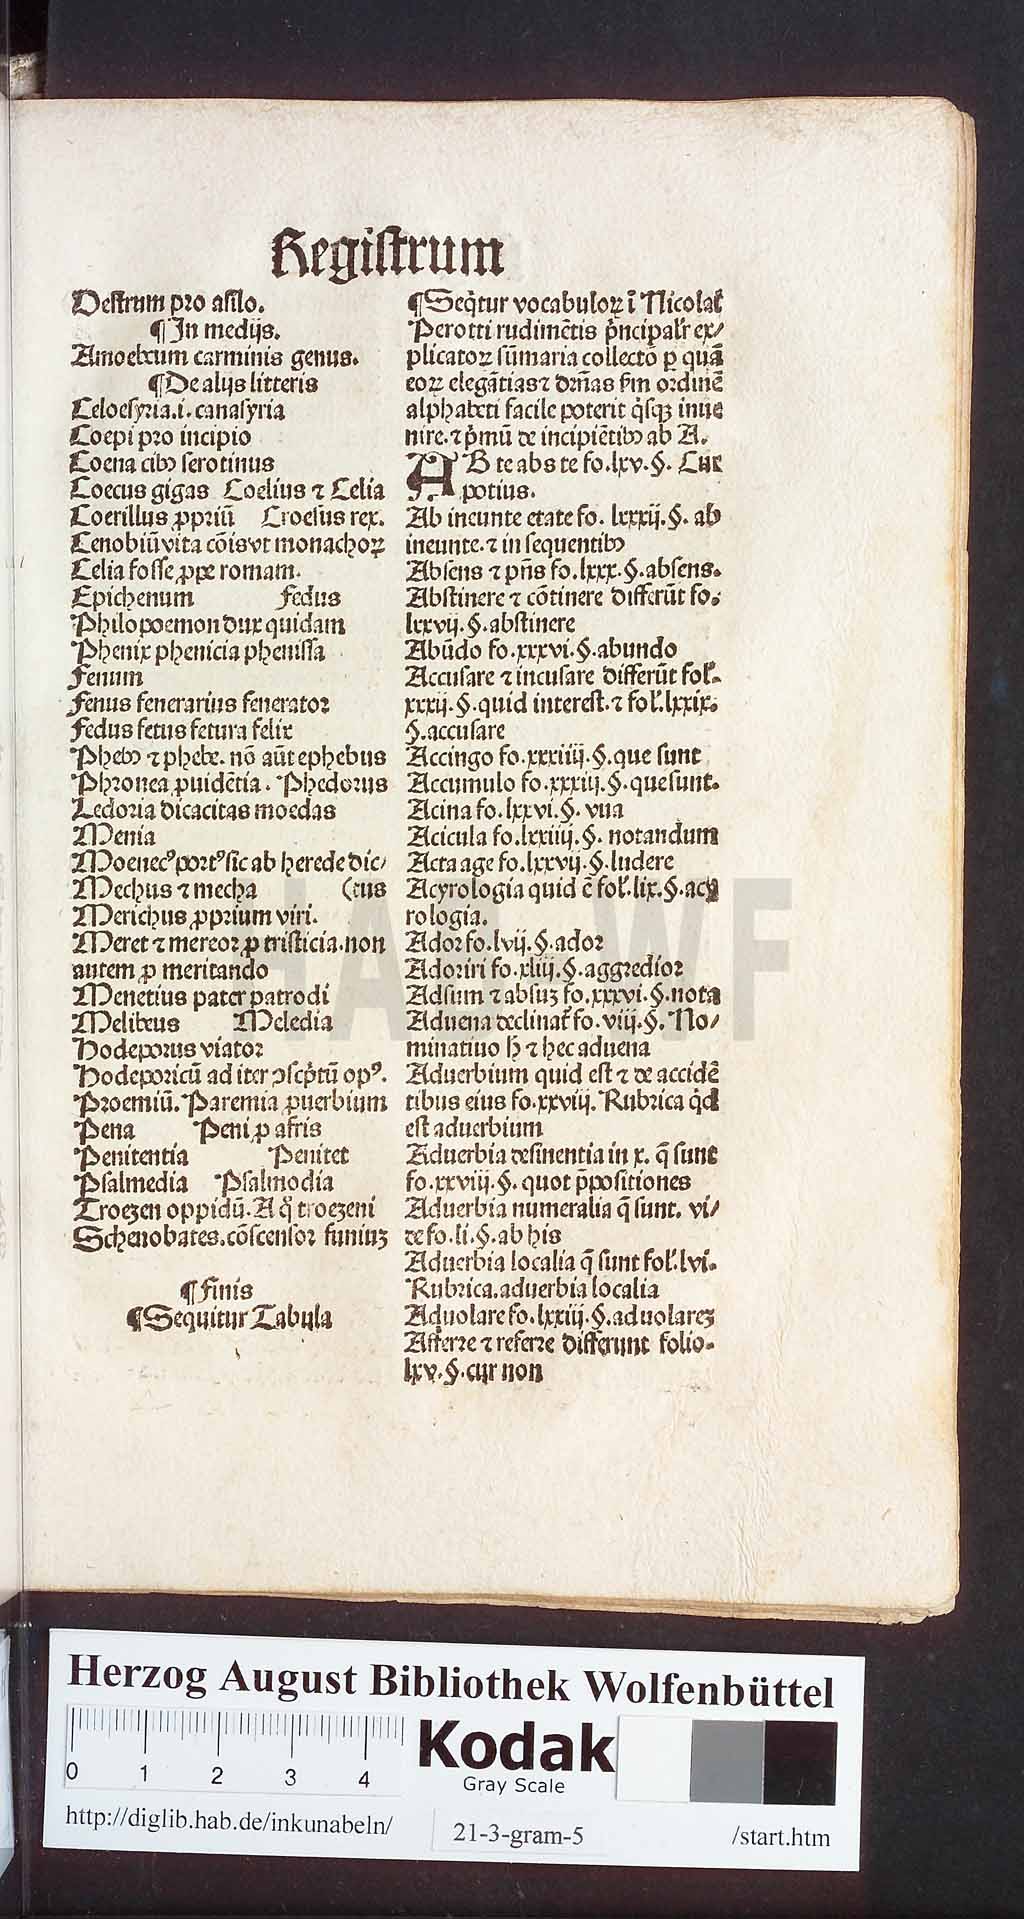 Registrum
Oestrum pro asilo.
¶ In medijs.
Amoebeum carminis genus.
¶ De alijs litteris
Celoesyria.i. canasyria
Coepi pro incipio
Coena cibꝰ serotinus
Coecus gigas Coelius ⁊ Celia
Coerillus ꝓpriū Croesus rex.
Cenobiū vita cōis vt monachoꝝ
Celia fosse ꝓpe romam.
Epichenum fedus
Philopoemon dux quidam
Phenix phenicia phenissa
Fenum
Fenus fenerarius fenerator
Fedus fetus fetura felix
Phebꝰ ⁊ phebe. nō aūt ephebus
Phronea ꝓuidētia. Phedorus
Ledoria dicacitas moedas
Menia
Moenecꝰ portꝰ sic ab herede dic/
Mechus ⁊ mecha (tus
Merichus ꝓprium viri.
Meret ⁊ mereor ꝓ tristicia.non
autem ꝓ meritando
Menetius pater patrodi
Melibeus Meledia
Hodeporus viator
Hodeporicū ad iter ꝯscp̄tū opꝰ.
Proemiū. Paremia ꝓuerbium
Pena Peni ꝓ afris
Penitentia Penitet
Psalmedia Psalmodia
Troezen oppidū. A q̊ troezeni
Schenobates. cōscensor funiuꝫ
¶ Finis
¶ Sequitur Tabula
¶ Seq̇tur vocabuloꝝ ī Nicolai
Perotti rudimētis p̄ncipalr̄ ex/
plicatoꝝ sūmaria collectō ꝑ quā
eoꝝ elegātias ⁊ dr̄nas ẜm ordinē
alphabeti facile poterit q̇sqꝫ inue
nire. ⁊ p̄mū de incipiētibꝰ ab A.
AB te abs te fo.lxv.§. Cur
potius.
Ab ineunte etate fo. lxxxij.§. ab
ineunte. ⁊ in sequentibꝰ
Absens ⁊ pn̄s fo.lxxx.§.absens.
Abstinere ⁊ cōtinere differūt fo.
lxxvij.§.abstinere
Abūdo fo.xxxvi.§.abundo
Accusare ⁊ incusare differūt fol̄.
xxxij.§.quid interest. ⁊ fol̄.lxxix.
§.accusare
Accingo fo.xxxiiij.§.que sunt
Accumulo fo.xxxiij.§.que sunt.
Acina fo.lxxvi.§. vua
Acicula fo.lxxiiij.§. notandum
Acta age fo.lxxvij.§.ludere
Acyrologia quid ē fol̄.lix.§.acy
rologia.
Ador fo.lvij.§.ador
Adoriri fo.xliij.§.aggredior
Adsum ⁊ absuꝫ fo.xxxvi.§.nota
Aduena declinat̄ fo.viij.§. No/
minatiuo h̄ ⁊ hec aduena
Aduerbium quid est ⁊ de accidē
tibus eius fo.xxviij. Rubrica q̇d
est aduerbium
Aduerbia desinentia in x. q̄ sunt
fo.xxviij.§. quot p̄positiones
Aduerbia numeralia q̄ sunt. vi/
de fo.li.§.ab his
Aduerbia localia q̄ sunt fol̄.lvi.
Rubrica.aduerbia localia
Aduolare fo.lxxiij.§.aduolareꝫ
Afferre ⁊ referre differunt folio.
lxv.§.cur non
HAB WF
Herzog August Bibliothek Wolfenbüttel
0 1 2 3 4
Kodak
Gray Scale
http://diglib.hab.de/inkunabeln/
21-3-gram-5
/start.htm